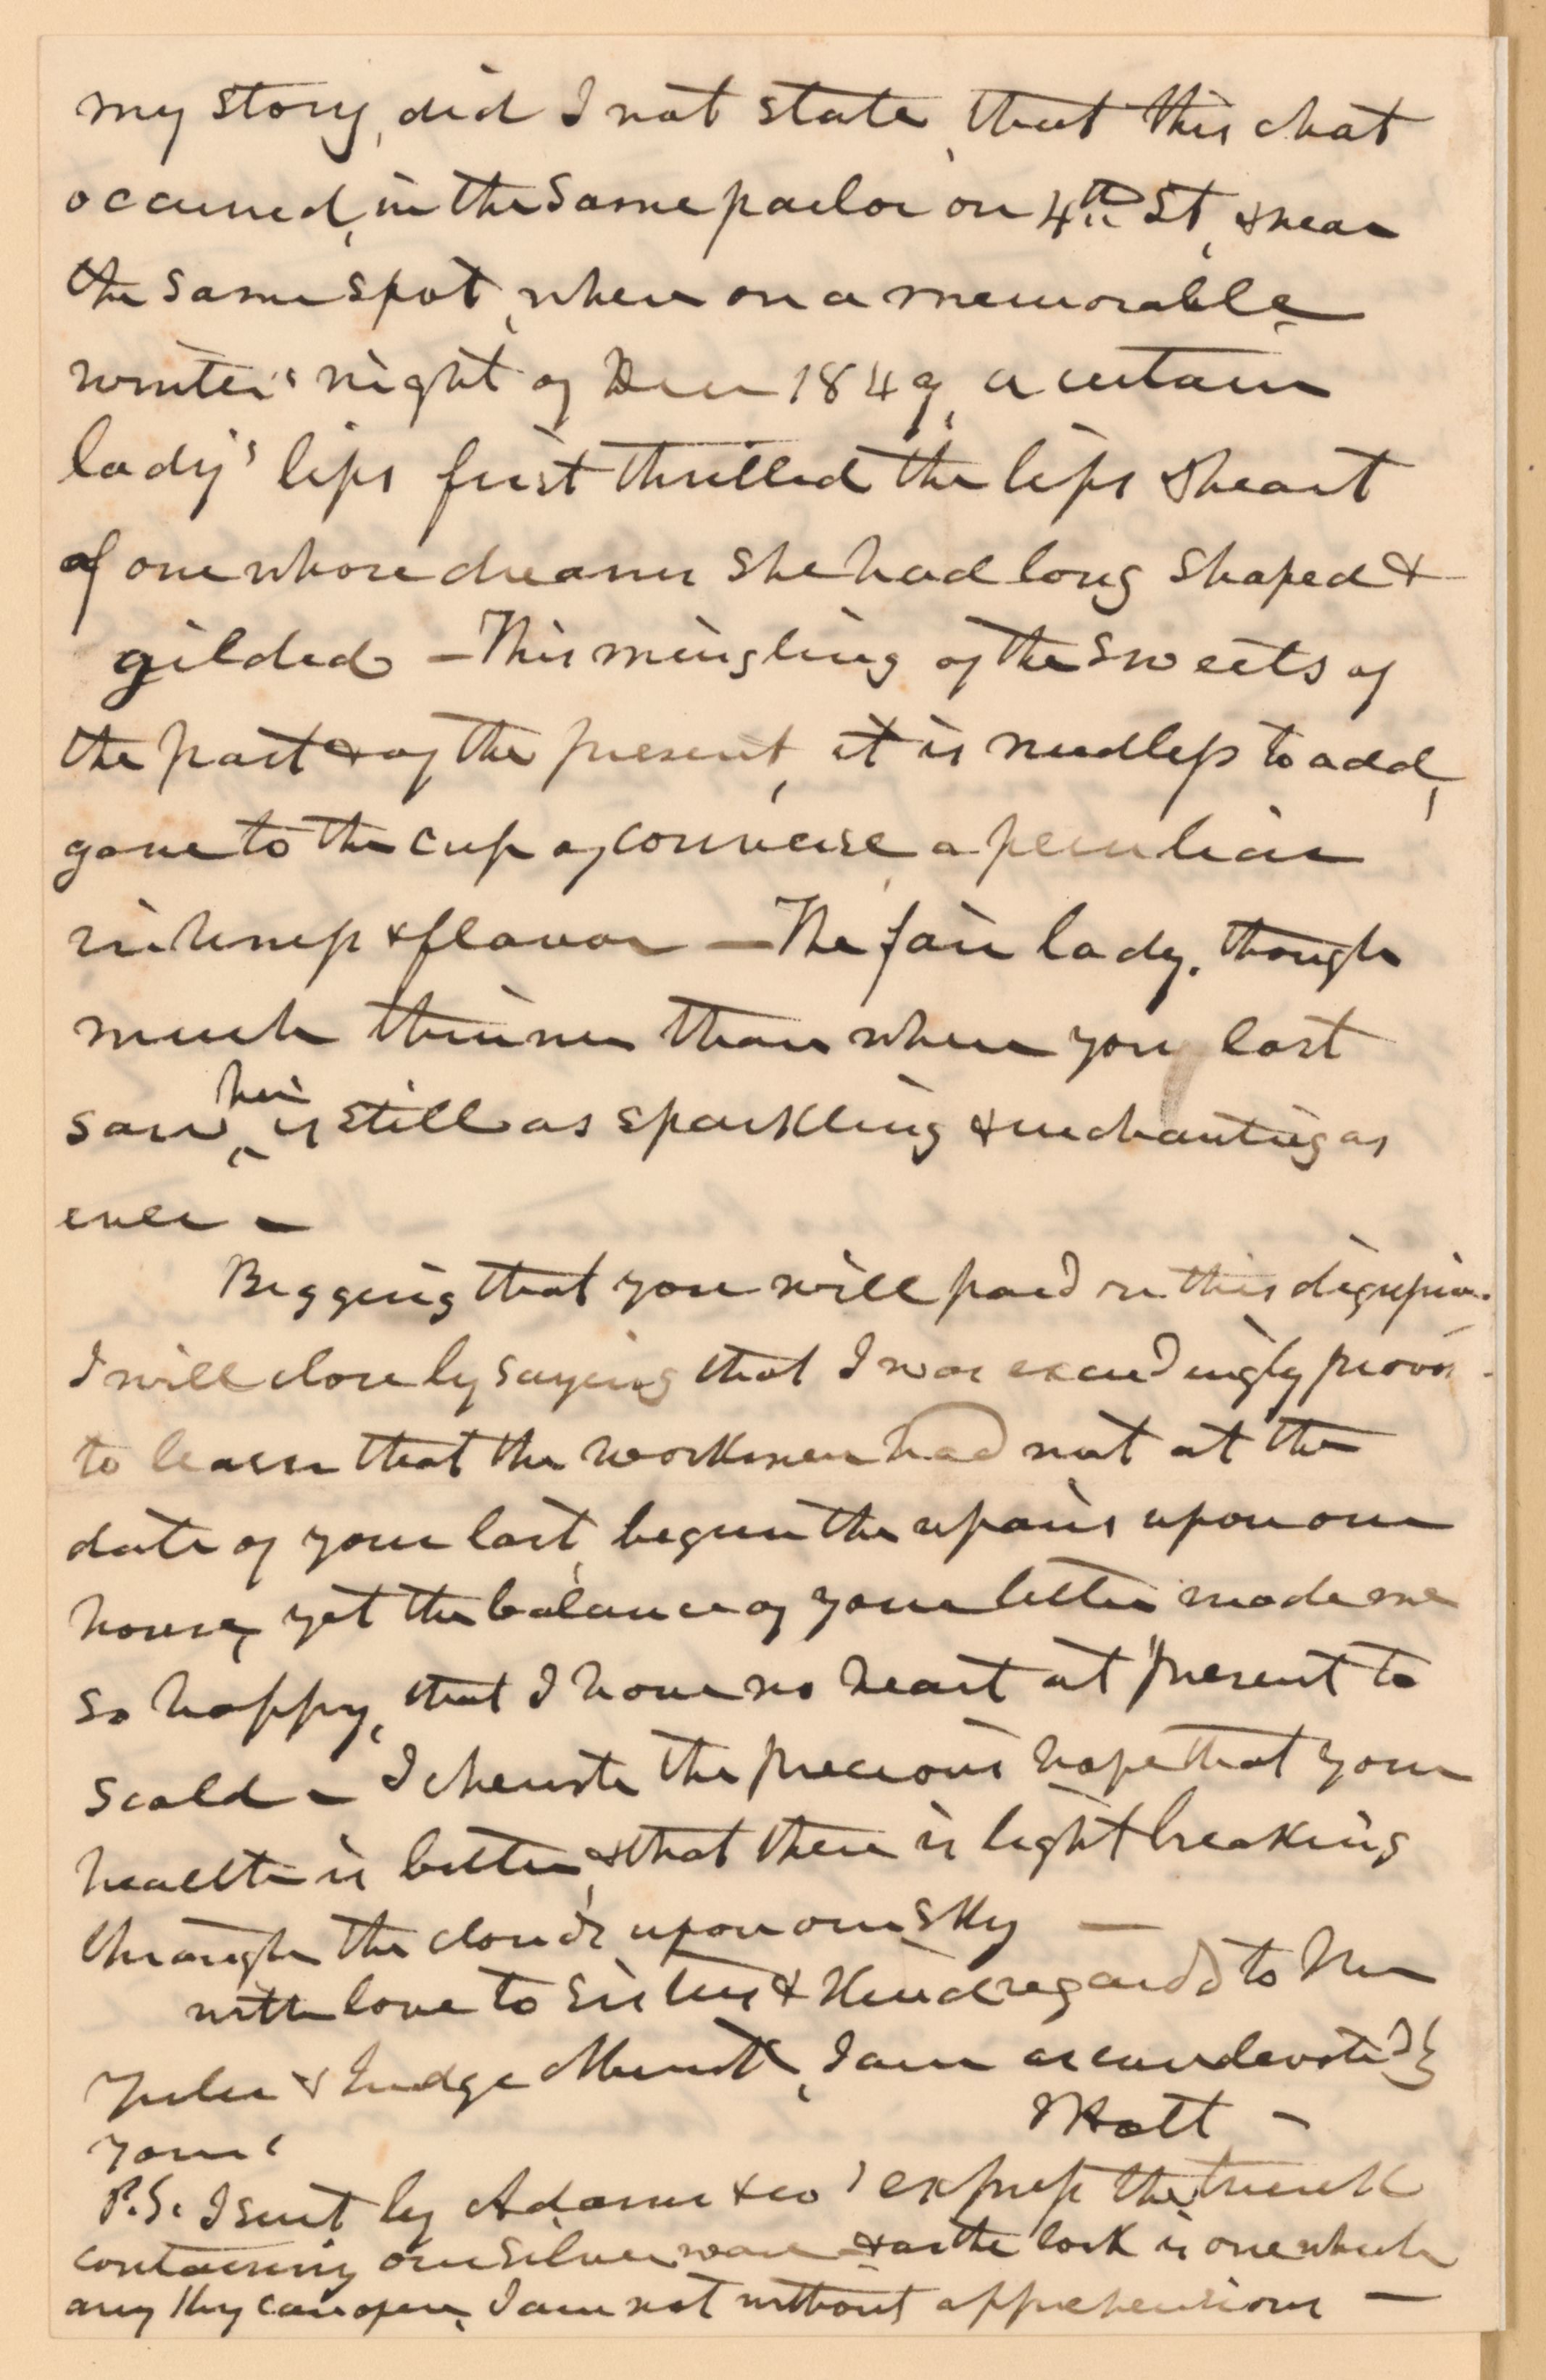 my story, did I not state, that this chat
occurred, in the same parlor on 4th St, & near
the same spot, where on a memorable
winter's night of Decr 1849, a certain
lady's lips first thrilled the lips & heart
of one whose dreams she had long shaped &
gilded — This mingling of the sweets of
the past & of the present, it is needless to add,
gave to the cup of converse, a peculiar
richness & flavor — The fair lady, though
much thinner than when you last
saw her is still as sparkling & enchanting as
ever —
Begging that you will pardon this digression.
I will close by saying that I was exceedingly provo
to learn that the workmen had not at the
date of your last, begun the repairs upon our
house, yet the balance of your letter made me
so happy, that I have no heart at present to
scold — I cherish the precious hope that your
health is better, & that there is light breaking
through the clouds upon our sky —
With love to Sisters & kind regards to Mr
Yulee & Judge Merrick, I am as ever devotedly
yours
J Holt —
P.S. I sent by Adams & Co' express the trunk
containing our silver ware & as the lock is one which
any key can open, I am not without apprehensions —